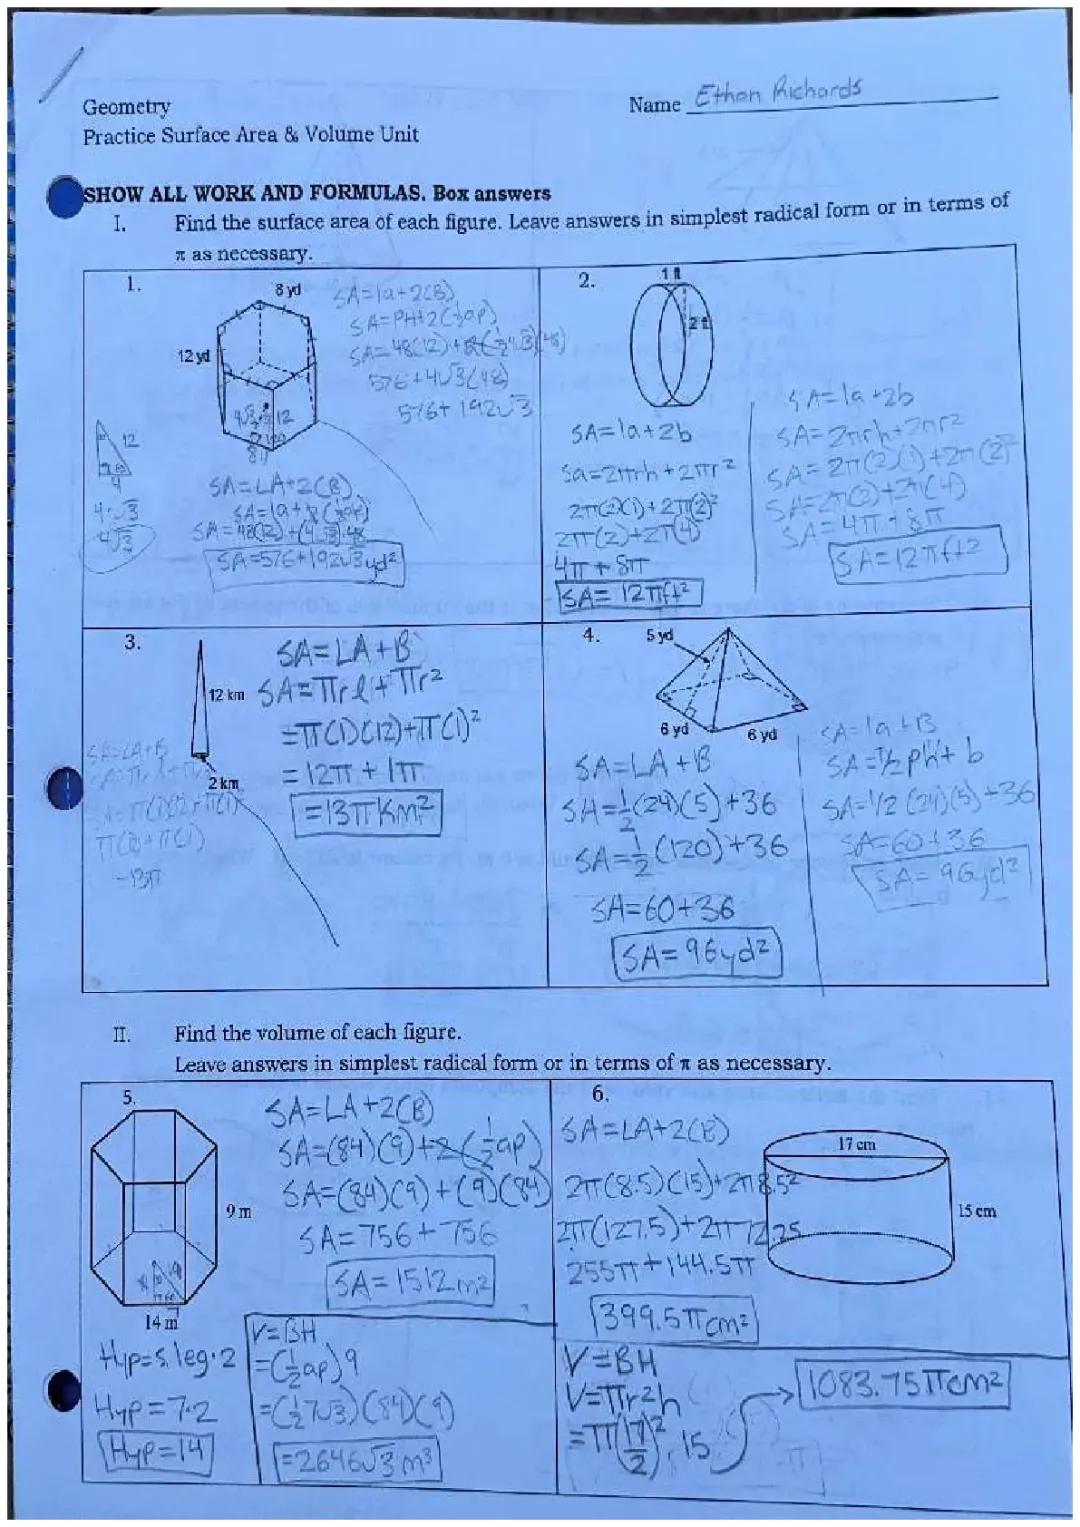 Geometry
Name Ethan Richards
Practice Surface Area & Volume Unit
SHOW ALL WORK AND FORMULAS. Box answers
I. Find the surface area of each figure. Leave answers in simplest radical form or in terms of
π as necessary.
1.
8 yd
12 yd
SA=la+2(B)
SA=PH+2(½ap)
576+4√3(48)
576+192√3
12
4
4√3
4√3
SA=LA+2(B)
SA=576+192√3 yd²
2.
1 ft
2 ft
SA=la+2b
Sa=2πrh+2πr²
2π(2)(1)+2π(2)²
2π(2)+2π(4)
4π+8π
SA=12πft²
SA=la+2b
SA=2πrh+2πr²
SA=2π(2)(1)+2π(2)²
SA=2π(2)+2π(4)
SA=4π+8π
SA=12πft2
3.
12 km
2 km
SA=LA+B
SA=πrl+πr²
=π(1)(12)+π(1)²
=12π+1π
=13πKm²
SA=LA+B
=13π
4.
5 yd
6 yd
6 yd
SA=LA+B
SA=½(24)(5)+36
SA=½(120)+36
SA=60+36
SA=96yd²
SA=la+B
SA=½ph+b
SA=1/2(24)(5)+36
SA=60+36
SA=96yd²
II. Find the volume of each figure.
Leave answers in simplest radical form or in terms of π as necessary.
5.
9 m
14 m
7
SA=LA+2(B)
SA=(84)(9)+2(½ap)
SA=(84)(9)+(9)(84)
SA=756+756
SA=1512m²
Hyp=s.leg·2
Hyp=7·2
Hyp=14
V=BH
=(½ap)9
=(½7√3)(84)(9)
=2646√3m³
6.
17 cm
15 cm
SA=LA+2(B)
2π(8.5)(15)+2π8.5²
2π(127.5)+2π72.25
255π+144.5π
399.5πcm²
V=BH
V=πr²h
=π(17/2)².15
1083.75πcm²